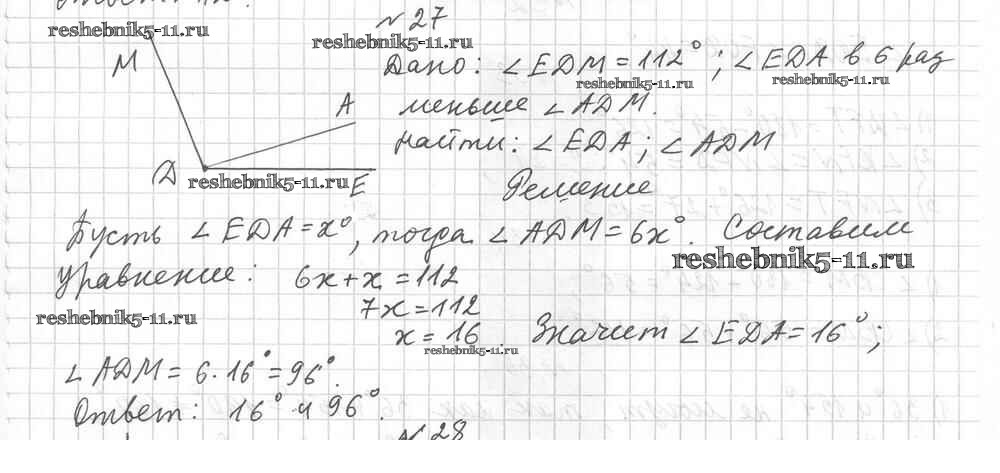 № 27
reshebnik5-11.ru
reshebnik5-11.ru
M
Дано: ∠EDM = 112°; ∠EDA в 6 раз
reshebnik5-11.ru
reshebnik5-11.ru
A
меньше ∠ADM.
найти: ∠EDA; ∠ADM
D
reshebnik5-11.ru
E
Решение
Пусть ∠EDA = x°, тогда ∠ADM = 6x°. Составим
reshebnik5-11.ru
уравнение: 6x + x = 112
reshebnik5-11.ru
7x = 112
x = 16. Значит ∠EDA = 16°;
reshebnik5-11.ru
∠ADM = 6 · 16° = 96°.
Ответ: 16° и 96°.
№ 28